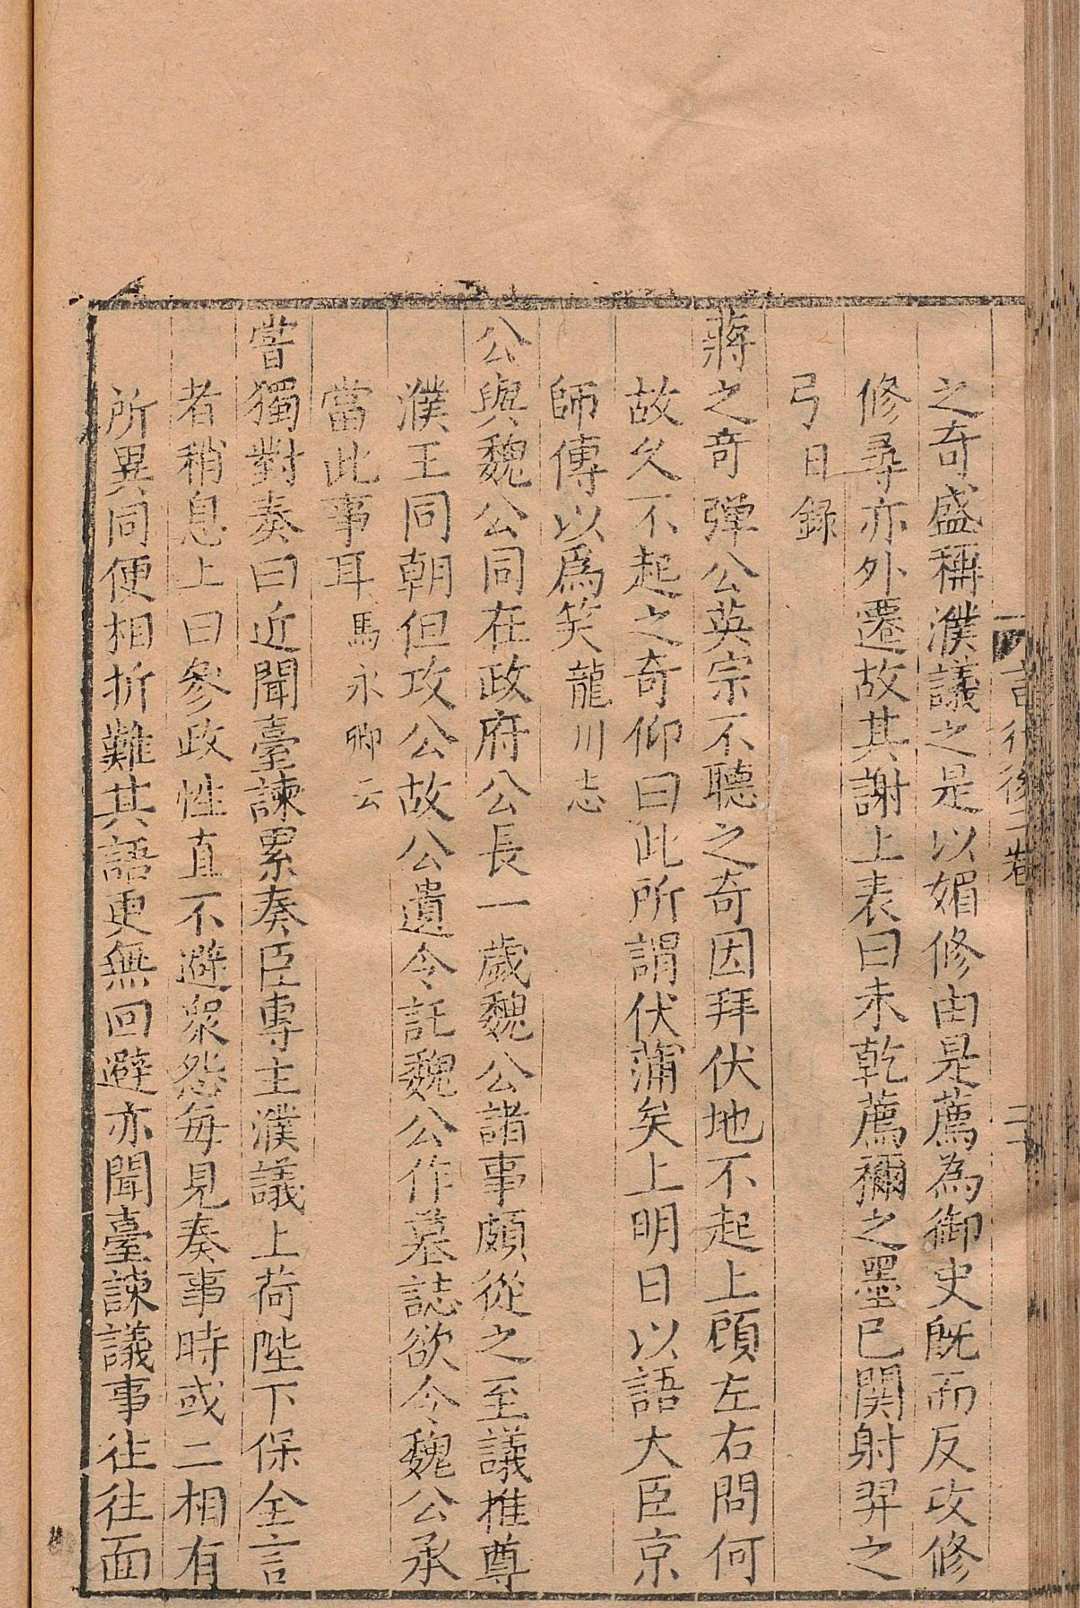 言行後二卷
二十
之奇盛稱濮議之是以媚修由是薦為御史旣而反攻修
修尋亦外遷故其謝上表曰未乾薦禰之墨已関射羿之
弓日錄
蔣之奇弾公英宗不聽之奇因拜伏地不起上顧左右問何
故久不起之奇仰曰此所謂伏蒲矣上明日以語大臣京
師傳以爲笑龍川志
公與魏公同在政府公長一歲魏公諸事頗從之至議推尊
濮王同朝但攻公故公遺令託魏公作墓誌欲令魏公承
當此事耳馬永卿云
嘗獨對奏曰近聞臺諫累奏臣專主濮議上荷陛下保全言
者稍息上曰參政性直不避衆怨每見奏事時或二相有
所異同便相折難其語更無回避亦聞臺諫議事往往面